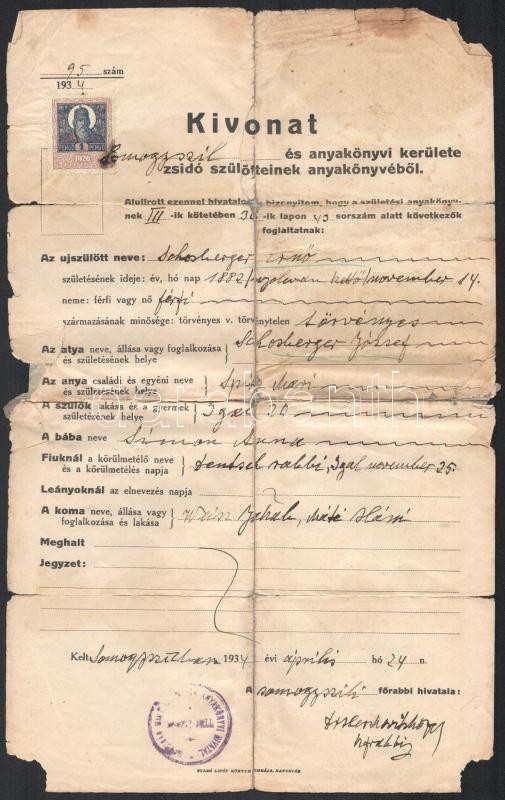 95 szám
1934
1926
Kivonat
Somogyszil és anyakönyvi kerülete
zsidó szülötteinek anyakönyvéből.
Alulírott ezennel hivatalosan bizonyítom, hogy a születési anyaköny-
nek III -ik kötetében -ik lapon 43 sorszám alatt következők
foglaltatnak:
Az ujszülött neve: Schosberger Ernő
születésének ideje: év, hó nap 1882/ /november 14.
neme: férfi vagy nő férfi
származásának minősége: törvényes v. törvénytelen törvényes
Az atya neve, állása vagy foglalkozása
és születésének helye Schosberger József
Az anya családi és egyéni neve
és születésének helye Mari
A szülők lakása és a gyermek
születésének helye Igal 20
A bába neve Simon Anna
Fiuknál a körülmetélő neve
és a körülmetélés napja rabbi, Igal november 25.
Leányoknál az elnevezés napja
A koma neve, állása vagy
foglalkozása és lakása Weisz Jakab, Máté
Meghalt
Jegyzet:
Kelt Somogyszilban 1934 évi április hó 24 n.
A somogyszili főrabbi hivatala:
ANYAKÖNYVI HIVATAL
SZABÓ LIPÓT KÖNYVNYOMDÁJA, KAPOSVÁR
darabanth